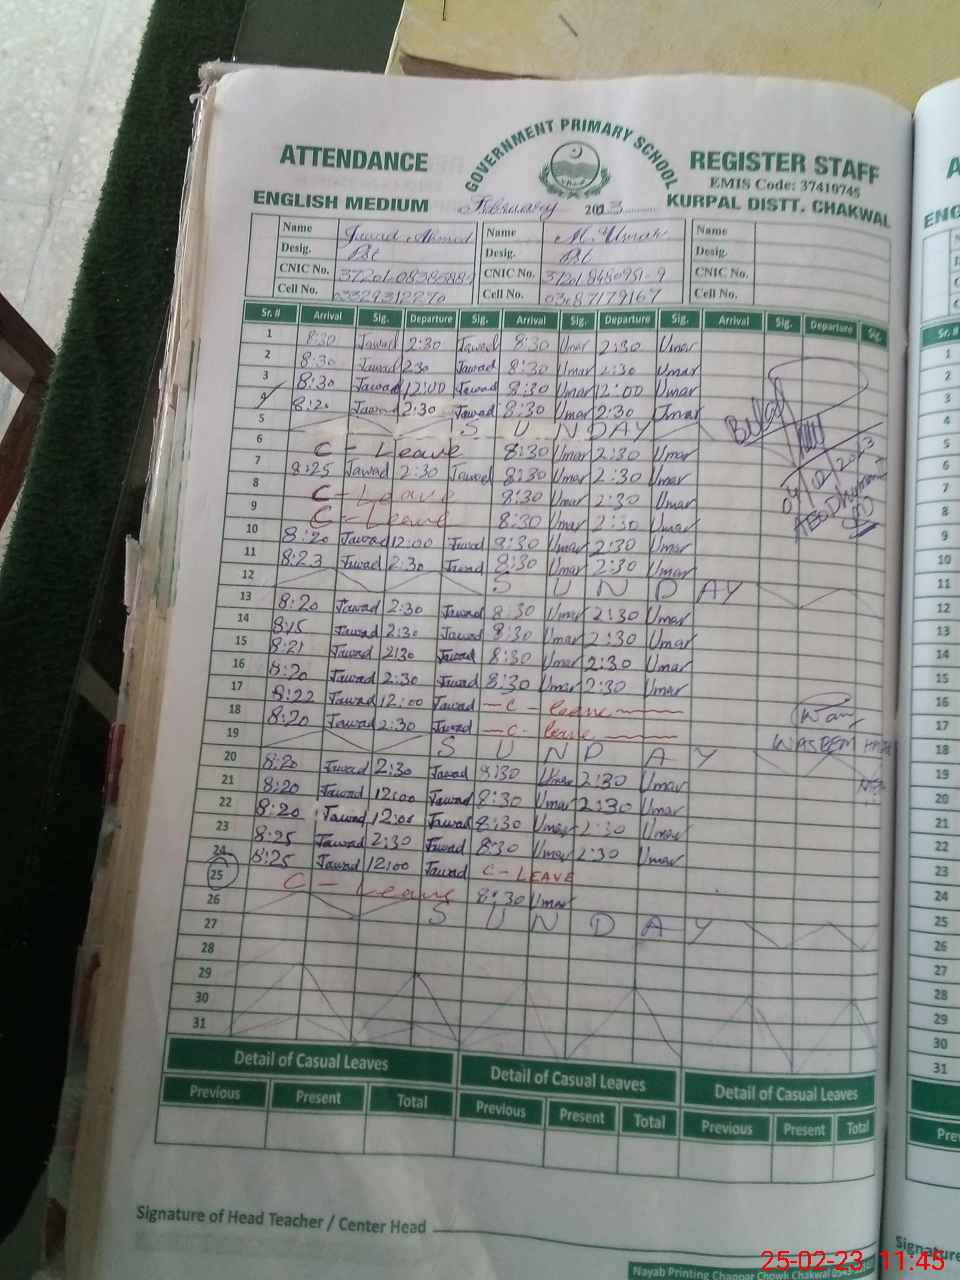 GOVERNMENT PRIMARY SCHOOL
ATTENDANCE REGISTER STAFF
EMIS Code: 37410745
ENGLISH MEDIUM February 2023 KURPAL DISTT. CHAKWAL
Name Jawad Ahmed Name M. Umar Name
Desig. Pst Desig. Pst Desig.
CNIC No. CNIC No. CNIC No.
Cell No. 03329312270 Cell No. 03487179167 Cell No.
Sr. # Arrival Sig. Departure Sig. Arrival Sig. Departure Sig. Arrival Sig. Departure Sig.
1 8:30 Jawad 2:30 Jawad 8:30 Umar 2:30 Umar
2 8:30 Jawad 2:30 Jawad 8:30 Umar 2:30 Umar
3 8:30 Jawad 12:00 Jawad 8:30 Umar 12:00 Umar
4 8:20 Jawad 2:30 Jawad 8:30 Umar 2:30 Umar
5 SUNDAY
6 C - Leave 8:30 Umar 2:30 Umar
7 8:25 Jawad 2:30 Jawad 8:30 Umar 2:30 Umar
8 C - Leave 8:30 Umar 2:30 Umar
9 C - Leave 8:30 Umar 2:30 Umar
10 8:20 Jawad 12:00 Jawad 8:30 Umar 2:30 Umar
11 8:23 Jawad 2:30 Jawad 8:30 Umar 2:30 Umar
12 SUNDAY
13 8:20 Jawad 2:30 Jawad 8:30 Umar 2:30 Umar
14 8:15 Jawad 2:30 Jawad 8:30 Umar 2:30 Umar
15 8:21 Jawad 2:30 Jawad 8:30 Umar 2:30 Umar
16 8:20 Jawad 2:30 Jawad 8:30 Umar 2:30 Umar
17 8:22 Jawad 12:00 Jawad - C - leave
18 8:20 Jawad 2:30 Jawad - C - leave
WASEEM
19 SUNDAY
20 8:20 Jawad 2:30 Jawad 8:30 Umar 2:30 Umar
21 8:20 Jawad 12:00 Jawad 8:30 Umar 2:30 Umar
22 8:20 Jawad 12:00 Jawad 8:30 Umar 2:30 Umar
23 8:25 Jawad 2:30 Jawad 8:30 Umar 2:30 Umar
24 8:25 Jawad 12:00 Jawad C - LEAVE
25 C - Leave 8:30 Umar
26 SUNDAY
27
28
29
30
31
Detail of Casual Leaves Detail of Casual Leaves Detail of Casual Leaves
Previous Present Total Previous Present Total Previous Present Total
Signature of Head Teacher / Center Head
Nayab Printing Chappar Chowk Chakwal
25-02-23 11:45